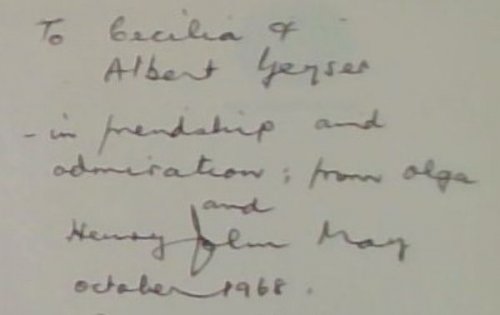 To Cecilia &
Albert Geyser
- in friendship and
admiration; from Olga
and
Henry John May
October 1968.